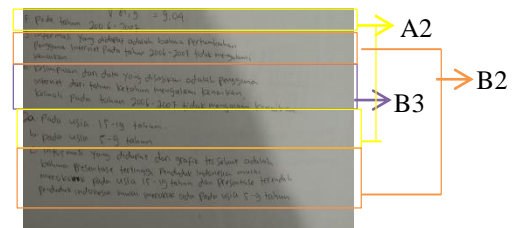 = 9,04
7. pada tahun 2006-2007
informasi yang didapat adalah bahwa pertumbuhan
pengguna internet pada tahun 2006-2007 tidak mengalami
kenaikan
kesimpulan dari data yang disajikan adalah pengguna
internet dari tahun ketahun mengalami kenaikan
kecuali pada tahun 2006-2007 tidak mengalami kenaikan
2a. Pada usia 15-19 tahun.
b. pada usia 5-9 tahun
c. informasi yang didapat dari grafik tersebut adalah
bahwa presentase tertinggi penduduk indonesia mulai
merokok pada usia 15-19 tahun dan presentase terendah
penduduk indonesia mulai merokok ada pada usia 5-9 tahun
A2
B2
B3